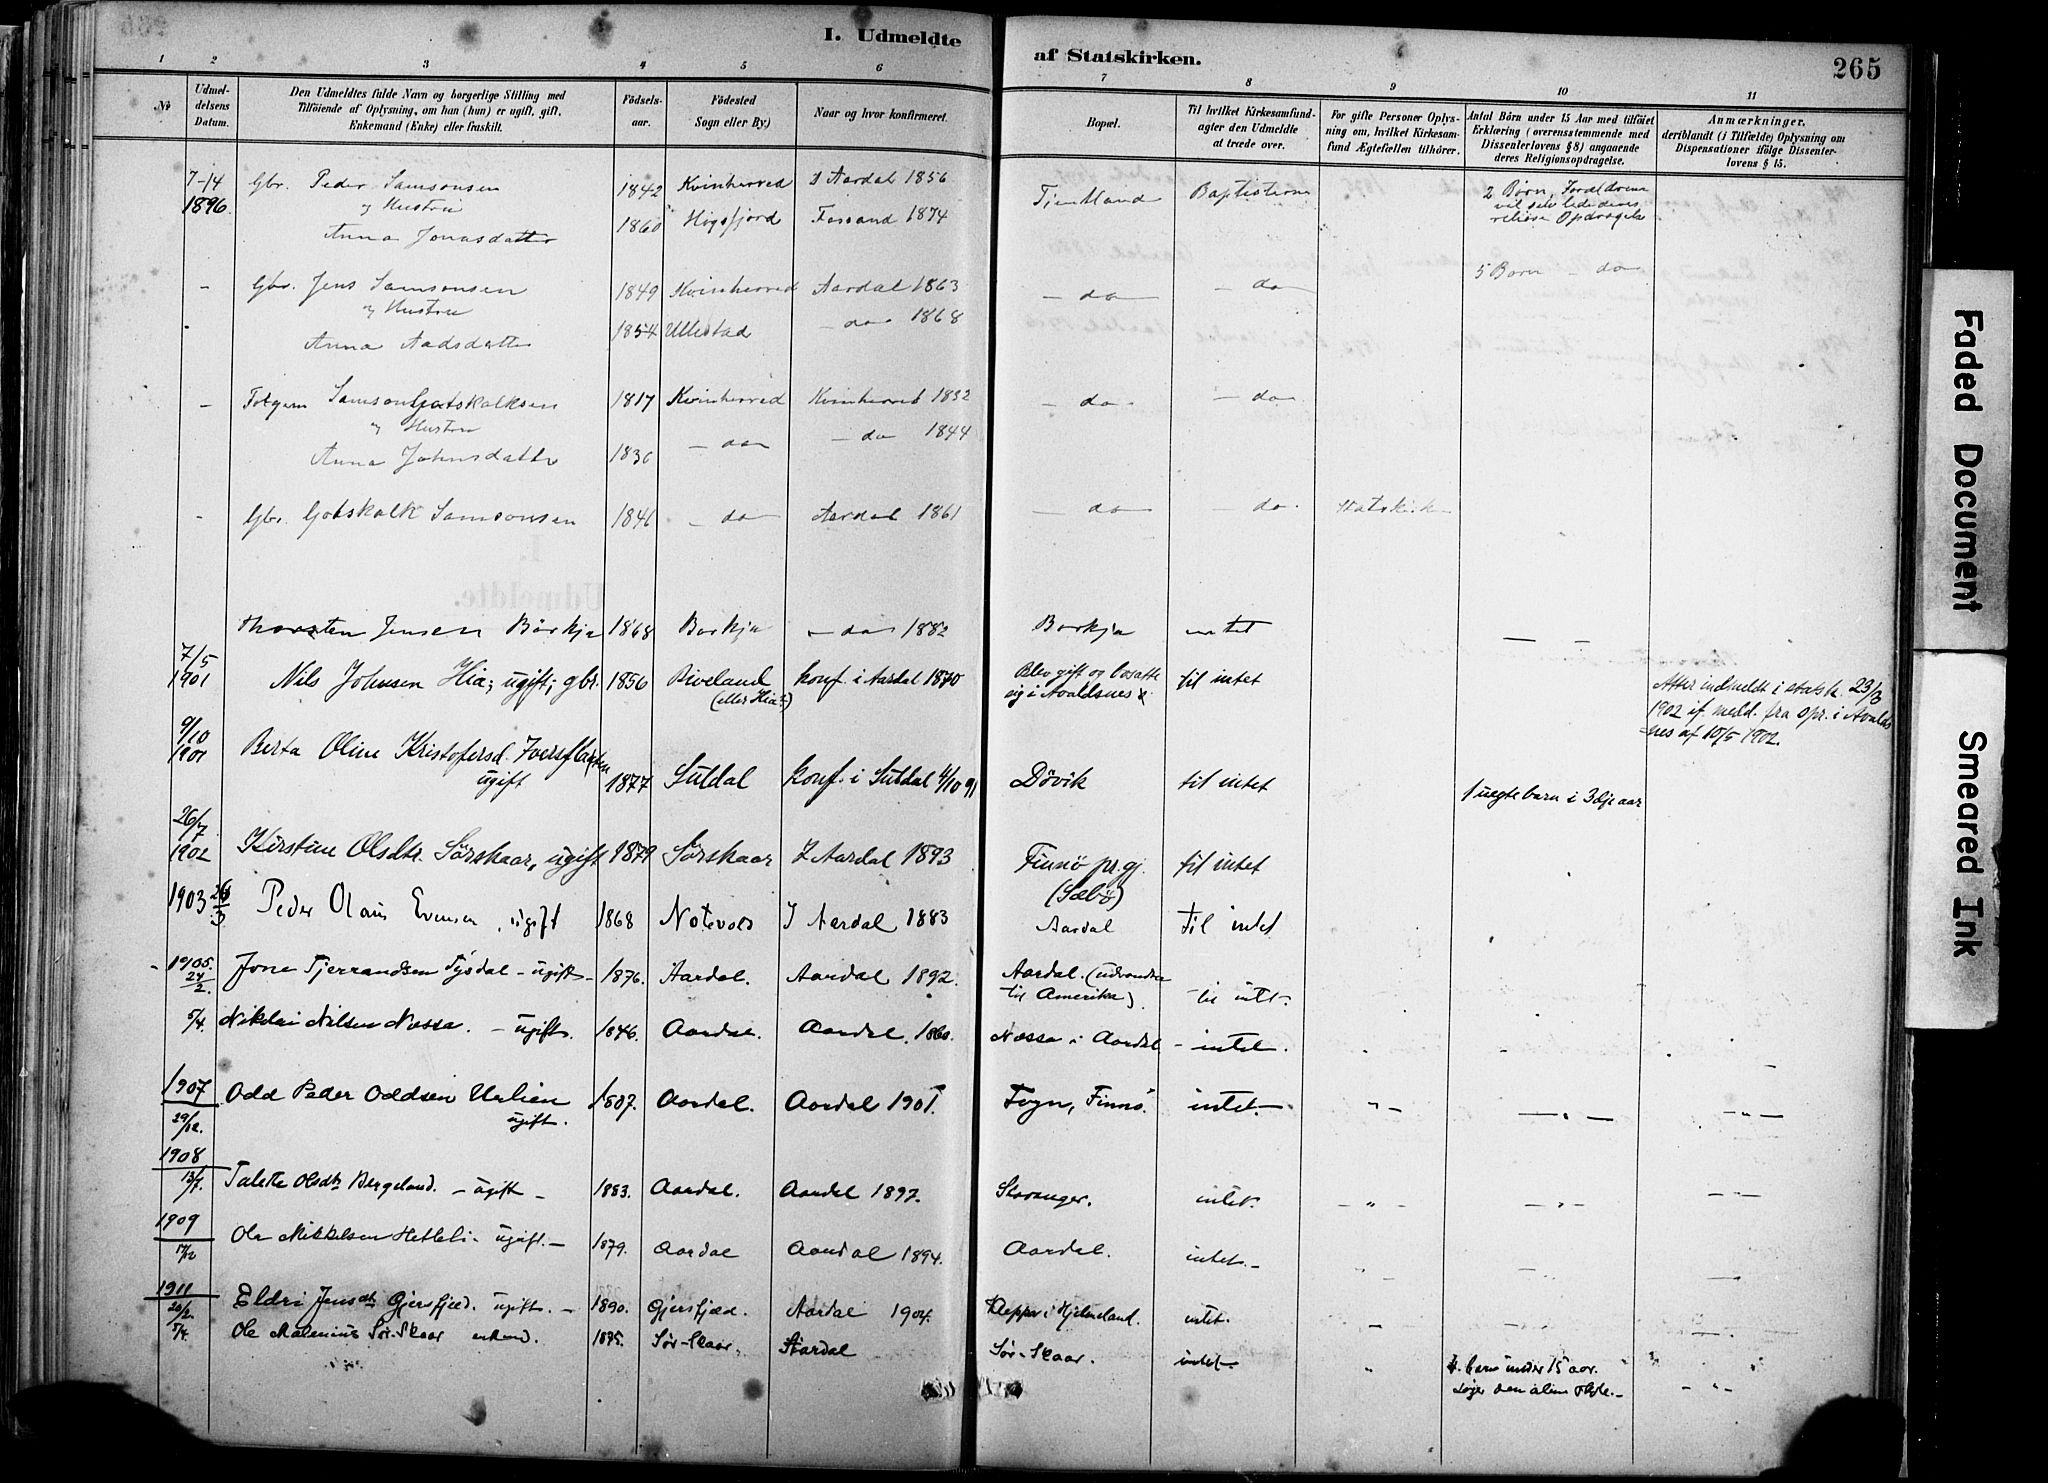 I. Udmeldte af Statskirken. 265
1 2 3 4 5 6 7 8 9 10 11
No
Udmel-
delsens
Datum.
Den Udmeldtes fulde Navn og borgerlige Stilling med
Tilföiende af Oplysning, om han (hun) er ugift, gift,
Enkemand (Enke) eller fraskilt.
Födsels-
aar.
Födested
Sogn eller By.)
Naar og hvor konfirmeret.
Bopæl.
Til hvilket Kirkesamfund-
agter den Udmeldte
at træde over.
For gifte Personer Oplys-
ning om, hvilket Kirkesam-
fund Ægtefællen tilhörer.
Antal Börn under 15 Aar med tilföiet
Erklæring (overensstemmende med
Dissenterlovens § 8) angaaende
deres Religionsopdragelse.
Anmærkninger,
deriblandt (i Tilfælde) Oplysning om
Dispensationer ifölge Dissenter-
lovens § 15.
7-14 Gbr. Peder Samsonsen 1842 Kvinherred I Aardal 1856 Baptisterne 2 Børn, Forældrene
1896. og Hustru vil selv lede deres
Anna Jonasdatter 1860 Høgsfjord Fossand 1874 religiøse Opdragelse
- Gbr. Jens Samsonsen 1849 Kvinherred Aardal 1863 - do - do 5 Børn - do
og Hustru
Anna Aadsdatter 1854 Ullestad - do 1868
- Samson Gotskalksen 1817 Kvinherred Kvinherred 1832 - do - - do
og Hustru
Anna Johnsdatter 1836 - do - do 1844
- Gbr. Gotskalk Samsonsen 1846 - do Aardal 1861 - do - do. Statskirke
Thorsten Jensen Børkja 1868 Borkja - do 1882 Borkja intet — —
7/5
1901 Nils Johnsen Hia; ugift; gbr. 1856 Riveland konf. i Aardal 1870 Blev gift og bosatte til intet Atter indmeldt i statsk. 23/3
(eller Hia?) sig i Avaldsnes 1902 if. meld. fra spr. i Avalds-
nes af 10/5 1902.
9/10
1901 Berta Oline Kristofersd. Iversflaten
ugift 1877 Suldal konf. i Suldal 4/10 91 Dövik til intet 1 uegte barn i 3dje aar
26/7
1902 Kirstine Olsdtr. Sörskaar, ugift 1879 Sörskaar I Aardal 1893 Finnö pr.gj. til intet
(Sæbö)
1903 26/3 Peder Olaus Evensen, ugift 1868 Notevold I Aardal 1883 Aardal Til intet
1905. Jone Tjerrandsen Tysdal - ugift - 1876. Aardal. Aardal 1892. Aardal. (udvandret
24/2. til Amerika) til intet.
5/4. Nikolai Nilsen Næssa. - ugift. 1846. Aardal. Aardal. 1860. Næssa i Aardal - intet.
1907
29/12. Odd Peder Oddsen 1887. Aardal. Aardal 1901. Fogn, Finnö. intet. - " - — " — - " -
ugift.
1908
13/7. Talette Olsdtr Bergeland. - ugift - 1883. Aardal. Aardal 1897. Stavanger. intet. - " - - " - - " -
1909
17/12 Ole Mikkelsen Hetleli - ugift. - 1879. Aardal Aardal 1894. Aardal. intet. - "
1911
20/2. Eldri Jensdtr Gjersfjæld. ugift. - 1890. Gjersfjæld. Aardal 1904. i Hjelmeland. intet. "
5/4. Ole Malenius Sör-Skaar enkemd. 1875. Sör-Skaar. Aardal Sör-Skaar. intet - " 4. barn under 15 aar. "
- " -
Faded Document
Smeared Ink